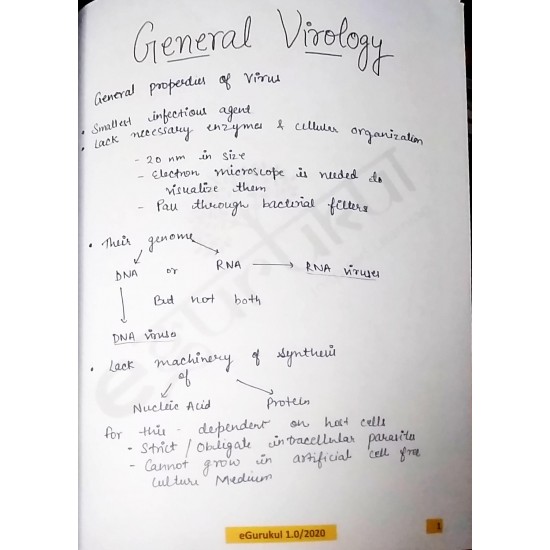 General Virology
General properties of Virus
• Smallest infectious agent
• Lack necessary enzymes & cellular organization
- 20 nm in size
- Electron microscope is needed to
visualize them
- Pass through bacterial filters
• Their genome
DNA or RNA → RNA viruses
But not both
DNA viruses
• Lack machinery of synthesis
of
Nucleic Acid Protein
for this - dependent on host cells
- Strict / Obligate intracellular parasite
- Cannot grow in artificial cell free
culture Medium
eGurukul
eGurukul 1.0/2020
1